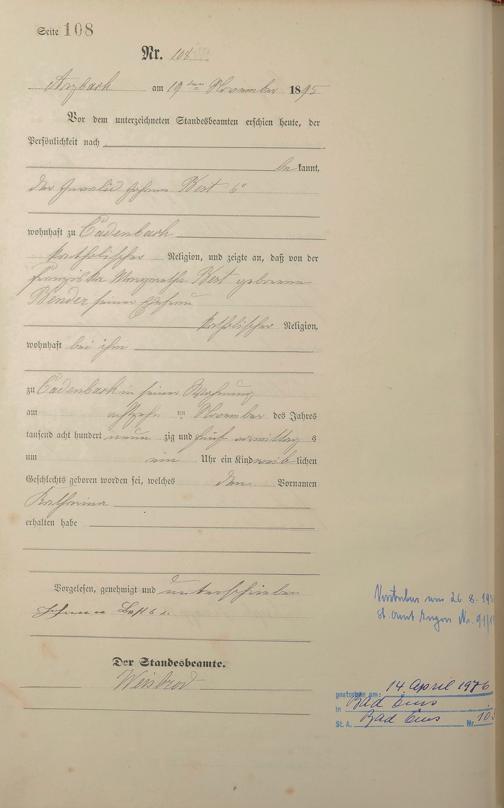 Seite 108
Nr. 108
Arzbach am 19ten November 1895
Vor dem unterzeichneten Standesbeamten erschien heute, der
Persönlichkeit nach
be kannt,
der Invalid Johann West 6r
wohnhaft zu Cadenbach
katholischer Religion, und zeigte an, daß von der
Franziska Margaretha West geborene
Wender seiner Ehefrau
katholischer Religion,
wohnhaft bei ihm
zu Cadenbach in seiner Wohnung
am achtzehn ten November des Jahres
tausend acht hundert neun zig und fünf vormittag s
um ein Uhr ein Kind weib lichen
Geschlechts geboren worden sei, welches den Vornamen
Katharina
erhalten habe
Vorgelesen, genehmigt und unterschrieben
Johann
Der Standesbeamte.
Weisbrod
26. 8.
St. Amt Nr.
gestorben am: 14. April 1976
in Bad Ems
St. A. Bad Ems Nr. 10